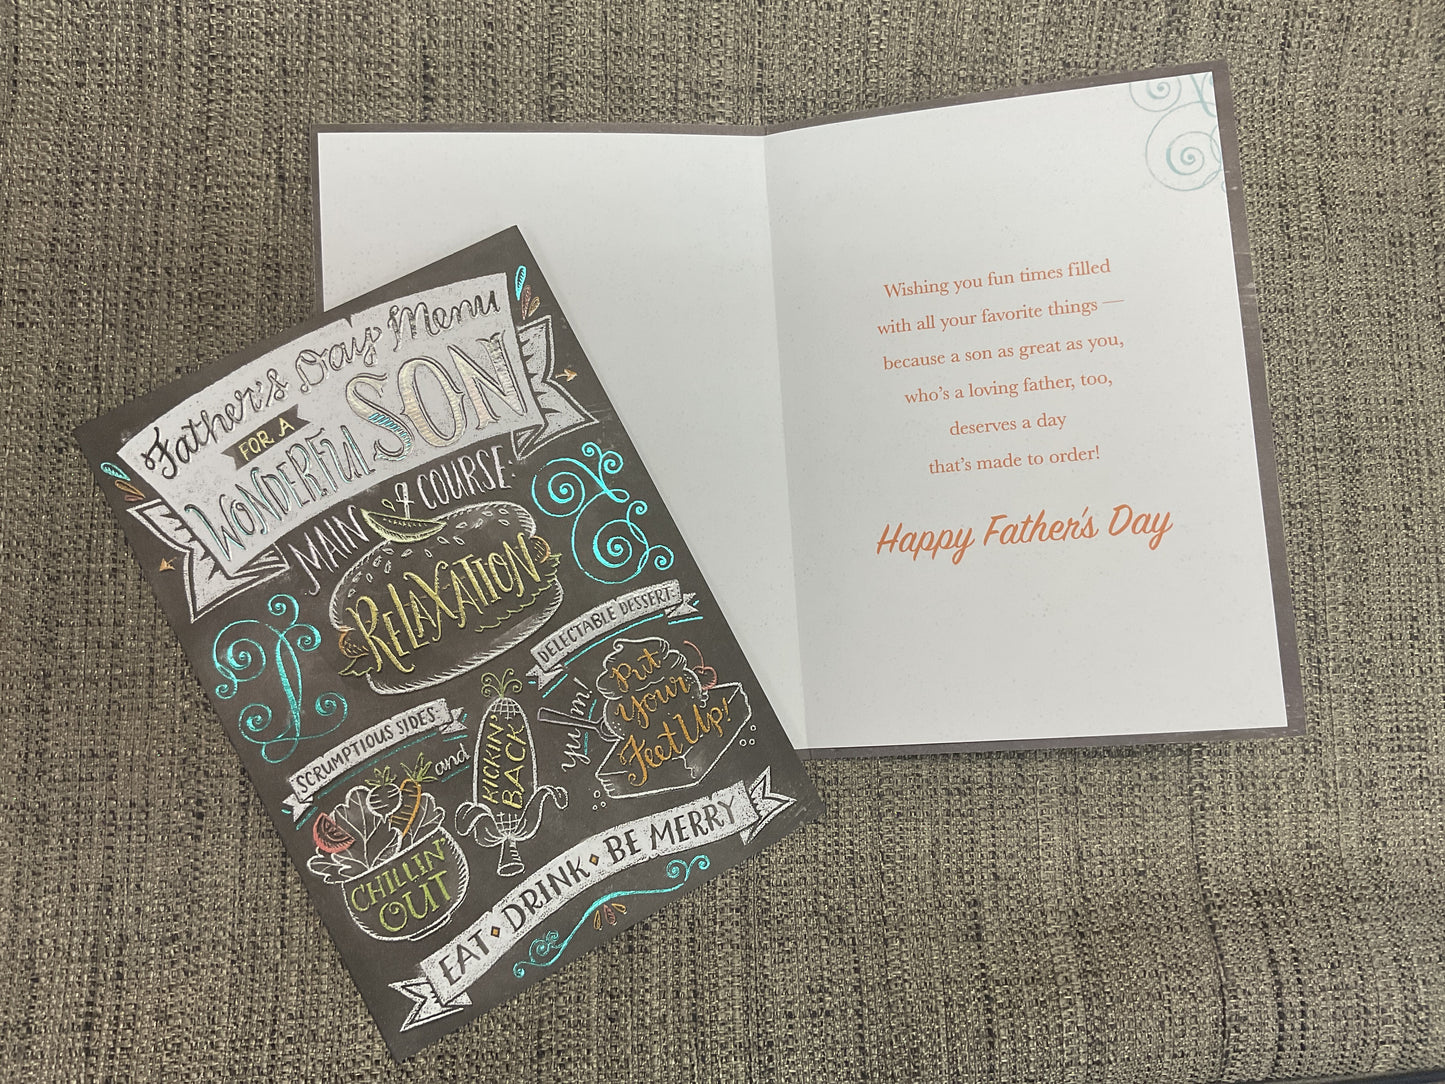 Father's Day Menu
FOR A
WONDERFUL SON
MAIN COURSE:
RELAXATION
DELECTABLE DESSERT:
Put
Your
Feet Up!
yum!
SCRUMPTIOUS SIDES:
and
KICKIN'
BACK
CHILLIN'
OUT
EAT • DRINK • BE MERRY
Wishing you fun times filled
with all your favorite things —
because a son as great as you,
who's a loving father, too,
deserves a day
that's made to order!
Happy Father's Day